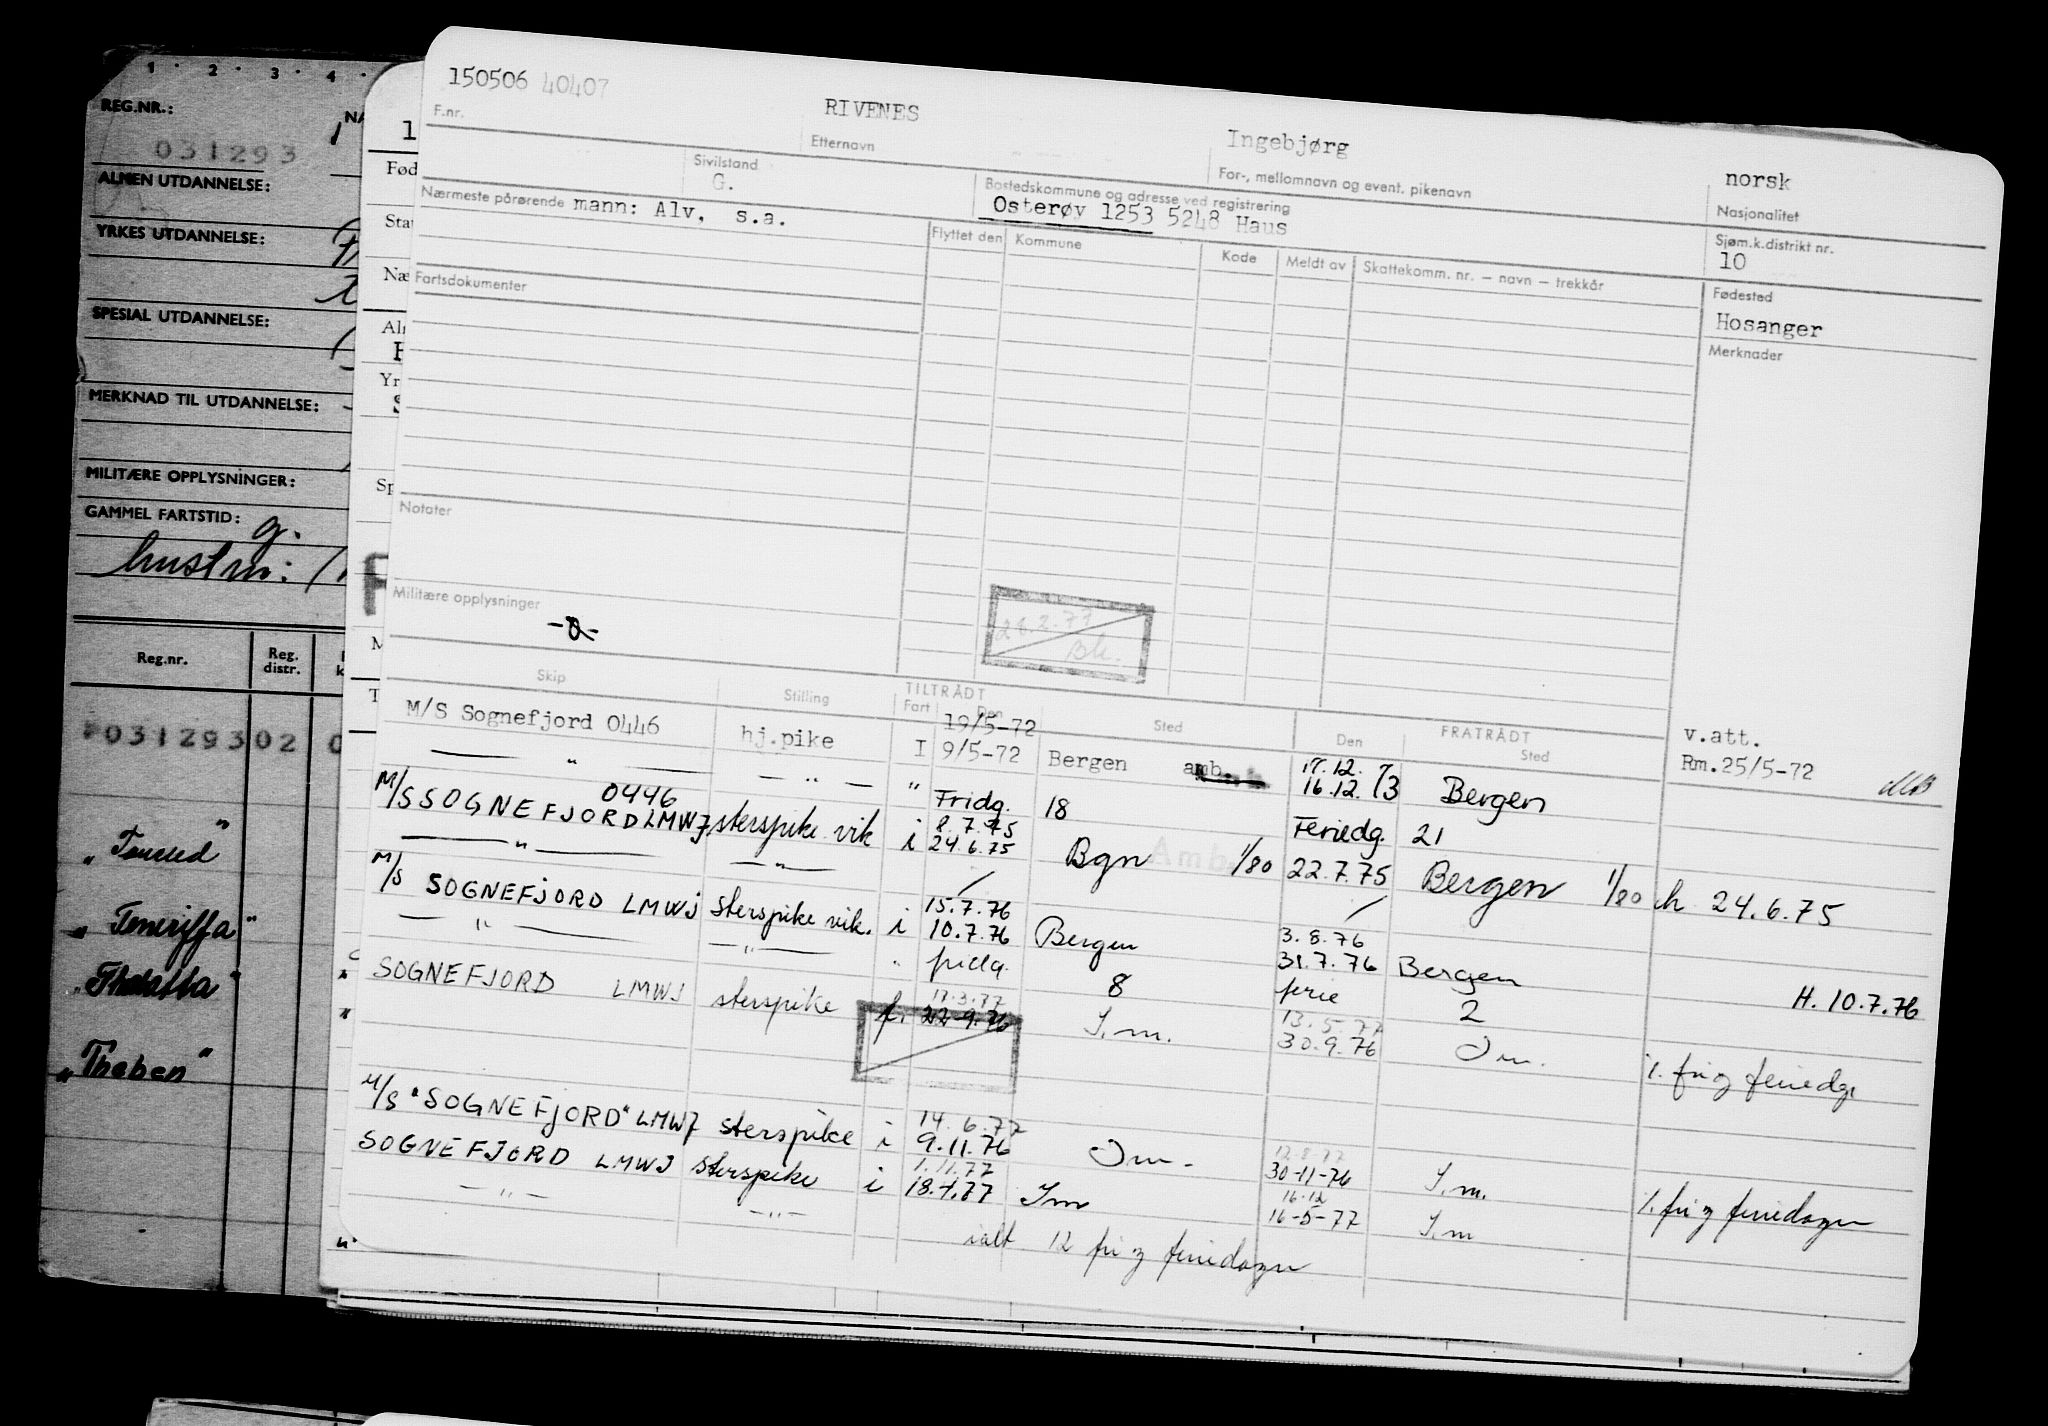 1 2 3 4
REG.NR.:
031293
ALMEN UTDANNELSE:
YRKES UTDANNELSE:
SPESIAL UTDANNELSE:
MERKNAD TIL UTDANNELSE:
MILITÆRE OPPLYSNINGER:
GAMMEL FARTSTID:
g.
hustru:
Reg.nr. Reg. distr.
P03129302 0
"
„ Toneriffa "
„ Thalatta "
„ Theben "
150506 40407
RIVENES
Ingebjørg
norsk
F.nr.
Etternavn
For-, mellomnavn og event. pikenavn
Nasjonalitet
Sivilstand
G.
Bostedskommune og adresse ved registrering
Osterøy 1253 5248 Haus
Sjøm.k.distrikt nr.
10
Nærmeste pårørende mann: Alv, s.a.
Flyttet den Kommune Kode Meldt av Skattekomm. nr. – navn – trekkår
Fødested
Hosanger
Fartsdokumenter
Merknader
Notater
Militære opplysninger
-0-
28.2.77
Bk.
Skip Stilling TILTRÅDT Fart Den Sted FRATRÅDT Den Sted
M/S Sognefjord 0446 hj.pike I 19/5-72 9/5-72 Bergen amb. 17.12. 16.12. 73 Bergen
v.att.
Rm.25/5-72
— " — — " — " Fridg. 18 Feriedg. 21
M/S SOGNEFJORD 0446 LMWJ sterspike vik i 8.7.75 24.6.75 Bgn Amb. 1/80 22.7.75 Bergen 1/80 h 24.6.75
— " — — " —
M/S SOGNEFJORD LMWJ sterspike vik. i 15.7.76 10.7.76 Bergen 3.8.76 31.7.76 Bergen H. 10.7.76
— " — — " — " fridg. 8 ferie 2
SOGNEFJORD LMWJ sterspike f. 17.3.77 22.9.76 I.m. 13.5.77 30.9.76 Im. 1. fri og feriedg.
M/S "SOGNEFJORD" LMWJ sterspike i 14.6.77 9.11.76 Im. 12.8.77 30-11-76 I.m. 1. fri og feriedager
SOGNEFJORD LMWJ sterspike i 1.11.77 18.1.77 Im 16.12 16-5-77 I.m
— " — — " —
ialt 12 fri og feriedager